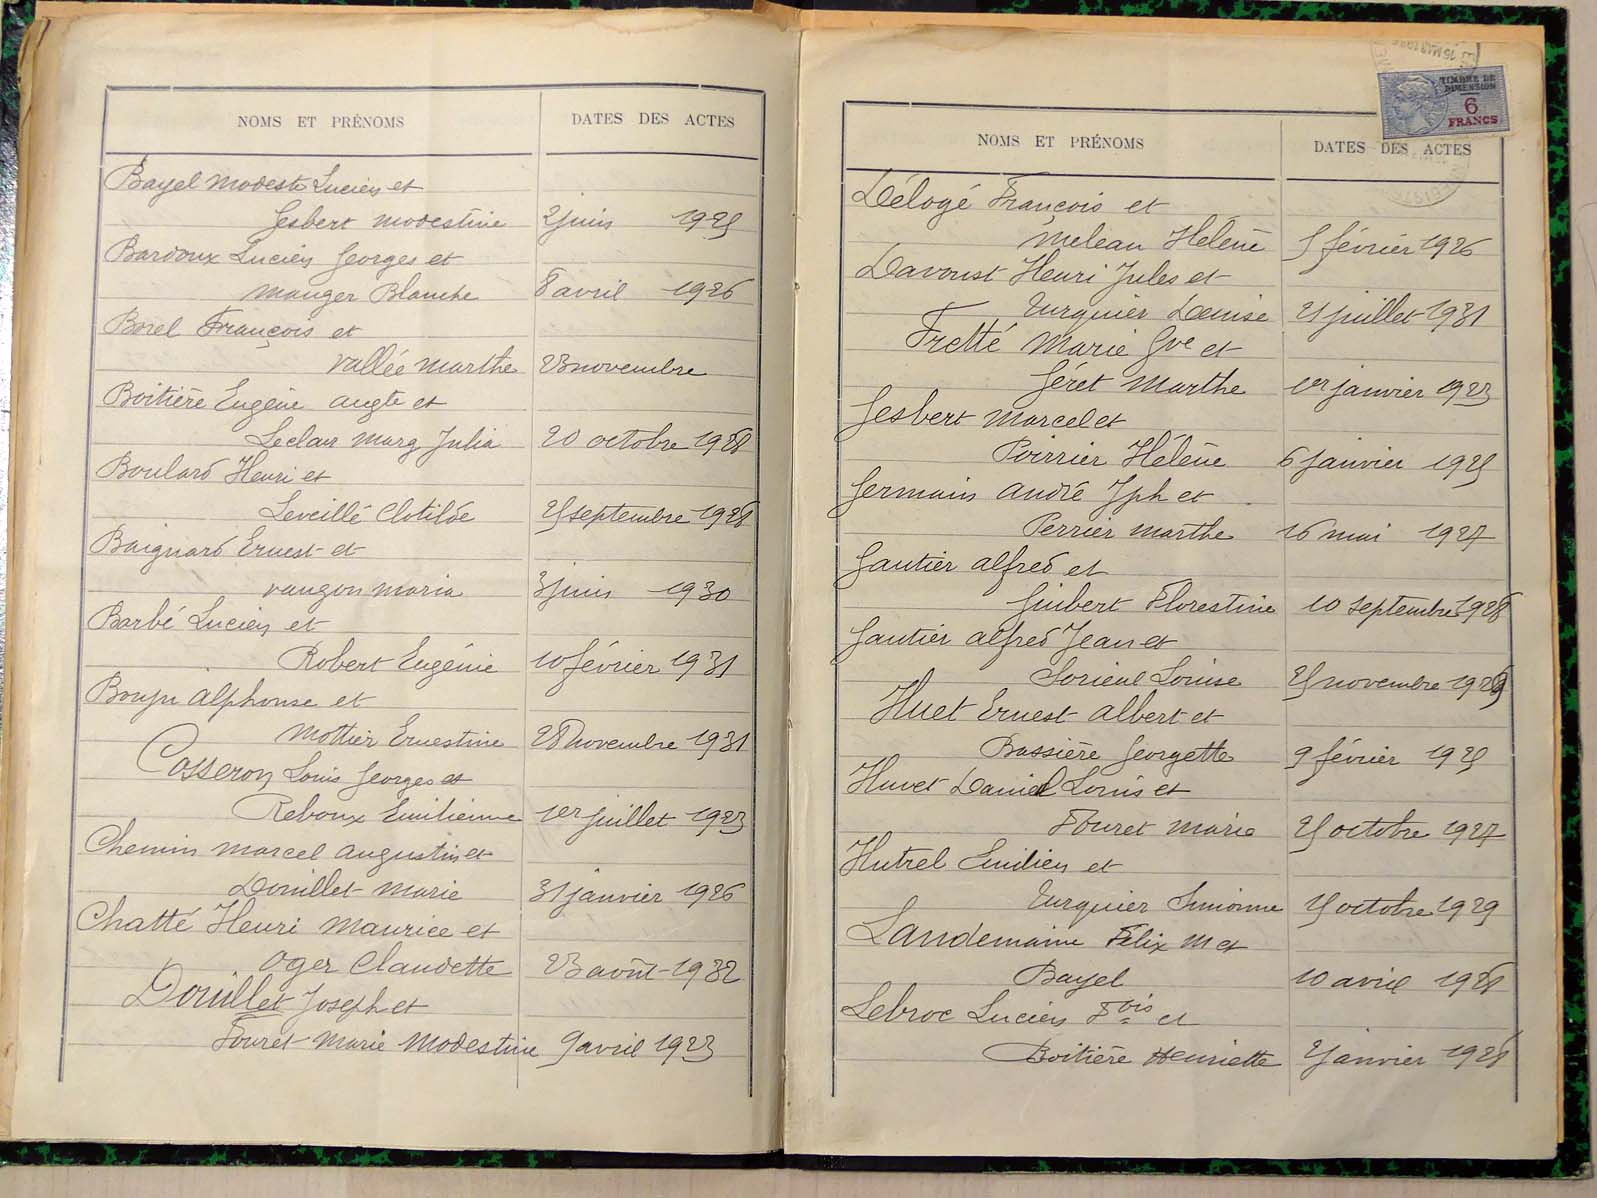 NOMS ET PRÉNOMS DATES DES ACTES
Bayel Modeste Lucien et
Gesbert Modestine 2 juin 1925
Bardoux Lucien Georges et
Mauger Blanche 8 avril 1926
Borel François et
Vallée Marthe 23 novembre
Boitière Eugène Augte et
Leclair Marg Julia 20 octobre 1928
Boulard Henri et
Leveillé Clotilde 25 septembre 1928
Baignard Ernest et
Vaugon Maria 3 juin 1930
Barbé Lucien et
Robert Eugénie 10 février 1931
Bouju Alphonse et
Mottier Ernestine 28 novembre 1931
Cosseron Louis Georges et
Reboux Emilienne 1er juillet 1923
Chemin Marcel Augustin et
Douillet Marie 31 janvier 1926
Chatté Henri Maurice et
Oger Claudette 23 août 1932
Douillet Joseph et
Fouret Marie Modestine 9 avril 1923
TIMBRE DE
DIMENSION
6
FRANCS
NOMS ET PRÉNOMS DATES DES ACTES
Délogé François et
Meleau Hélène 5 février 1926
Davoust Henri Jules et
Turquier Denise 21 juillet 1931
Fretté Marie Gve et
Géret Marthe 1er janvier 1923
Gesbert Marcel et
Poirrier Hélène 6 janvier 1925
Germain André Jph et
Perrier Marthe 16 mai 1927
Gautier Alfred et
Guibert Florestine 10 septembre 1928
Gautier Alfred Jean et
Lorieul Louise 25 novembre 1929
Huet Ernest Albert et
Bassière Georgette 9 février 1925
Huvet Daniel Louis et
Fouret Marie 25 octobre 1927
Hutrel Emilien et
Turquier Simonne 15 octobre 1929
Landemaine Félix M et
Bayel 10 avril
Lebroc Lucien Fois et
Boitière Henriette 2 janvier